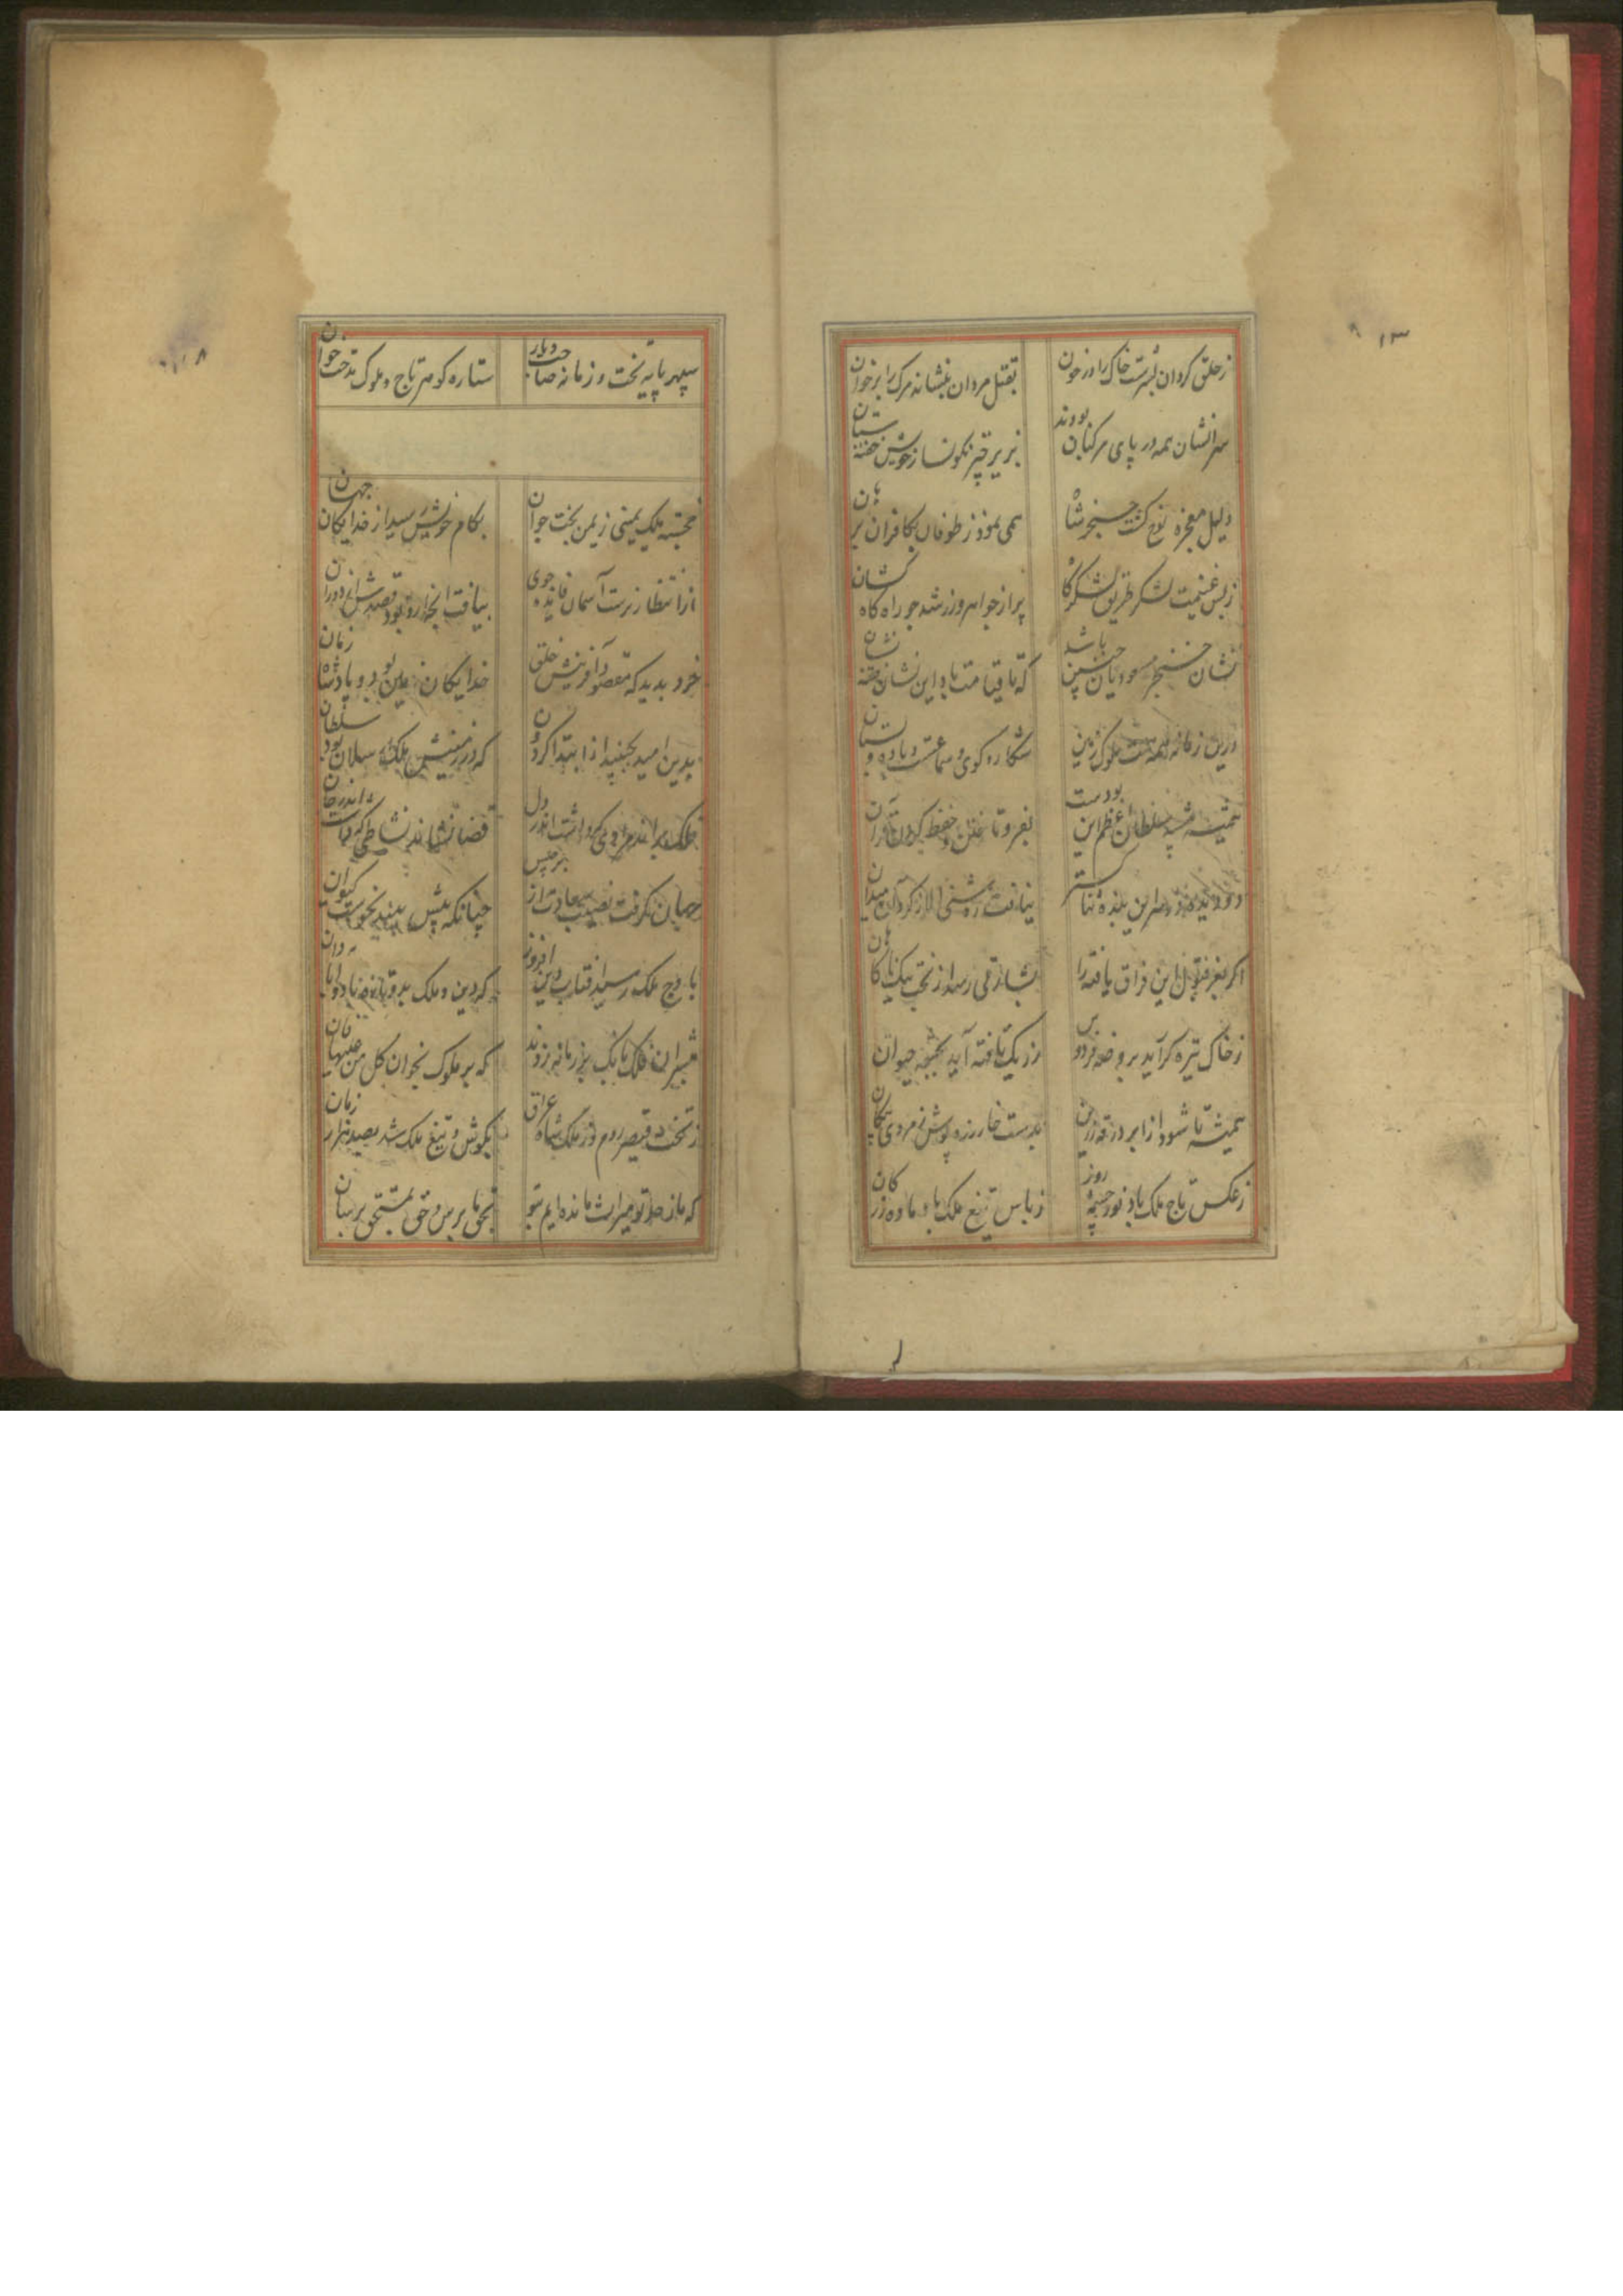 زحلق کردان بسرشت خاک را در خون
بقتل مردان بنشاند مرک را بر خوان
سرانشان همه در پای مرکبان بودند
بزیر چتر نکونسار خویش خفته ستان
دلیل معجزه نوح کشت خنجر شاه
همی نمود ز طوفان بکافران برهان
زبس غنیمت لشکر طریق لشکرکاه
پر از جواهر و زر شد چو راه کاهکشان
نشان خنجر محمودیان چنین باشد
که تا قیامت باد این نشان
درین زمانه همه ملوک زمین
شکار و کوی و سماعست و باده و بستان
همیشه سلطان اعظم این بودست
بغزو تا
اکر بغزفتن این فراق یافته را
بشارتی رسد از تخت نیک ناکاهان
زخاک تیره کر آید بروضه فردوس
ز ریک تافته آید بچشمه حیوان
همیشه تا شود از ابر در قعر زمین
بدست خار زره پوش زمردی پیکان
زعکس تاج ملک باد نور چشمه روز
زباس تیغ ملک باد ماده زر کان
سپهر پایه تخت و زمانه صاحب دیار
ستاره کوهر تاج و ملوک مدحت خوان
خجسته ملک یمینی زیمن بخت جوان
بکام خویش رسید از خدایکان جهان
از انتظار برست آسمان فایده جوی
بیافت آنچه ارو بود قصدش از دوران
خرد بدید که مقصود آفرینش خلق
خدایکان زمین بود و پادشاه زمان
بدین امید بجنبید از ابتدا کردون
که در زمینش ملک سلطان بود
فلک براند مرادی که داشت اندر دل
قضا نشاند نشاطی که داشت اندر جان
جهان کرفت نصیب سعادت از برجیس
چنانکه بیش نبیند نحوست کیوان
باوج ملک رسید آفتاب دین افروز
که دین و ملک بدو تازه باد و آبادان
مبشران فلک بانک بر زمانه زدند
که بر ملوک بخوان کل من علیها فان
زتخت قیصر روم و ز ملک شاه عراق
بکوش و تیغ ملک شد بصد هزار زبان
که ما ز جد تو میراث مانده ایم بتو
بحق ما برس و حق بمستحق برسان